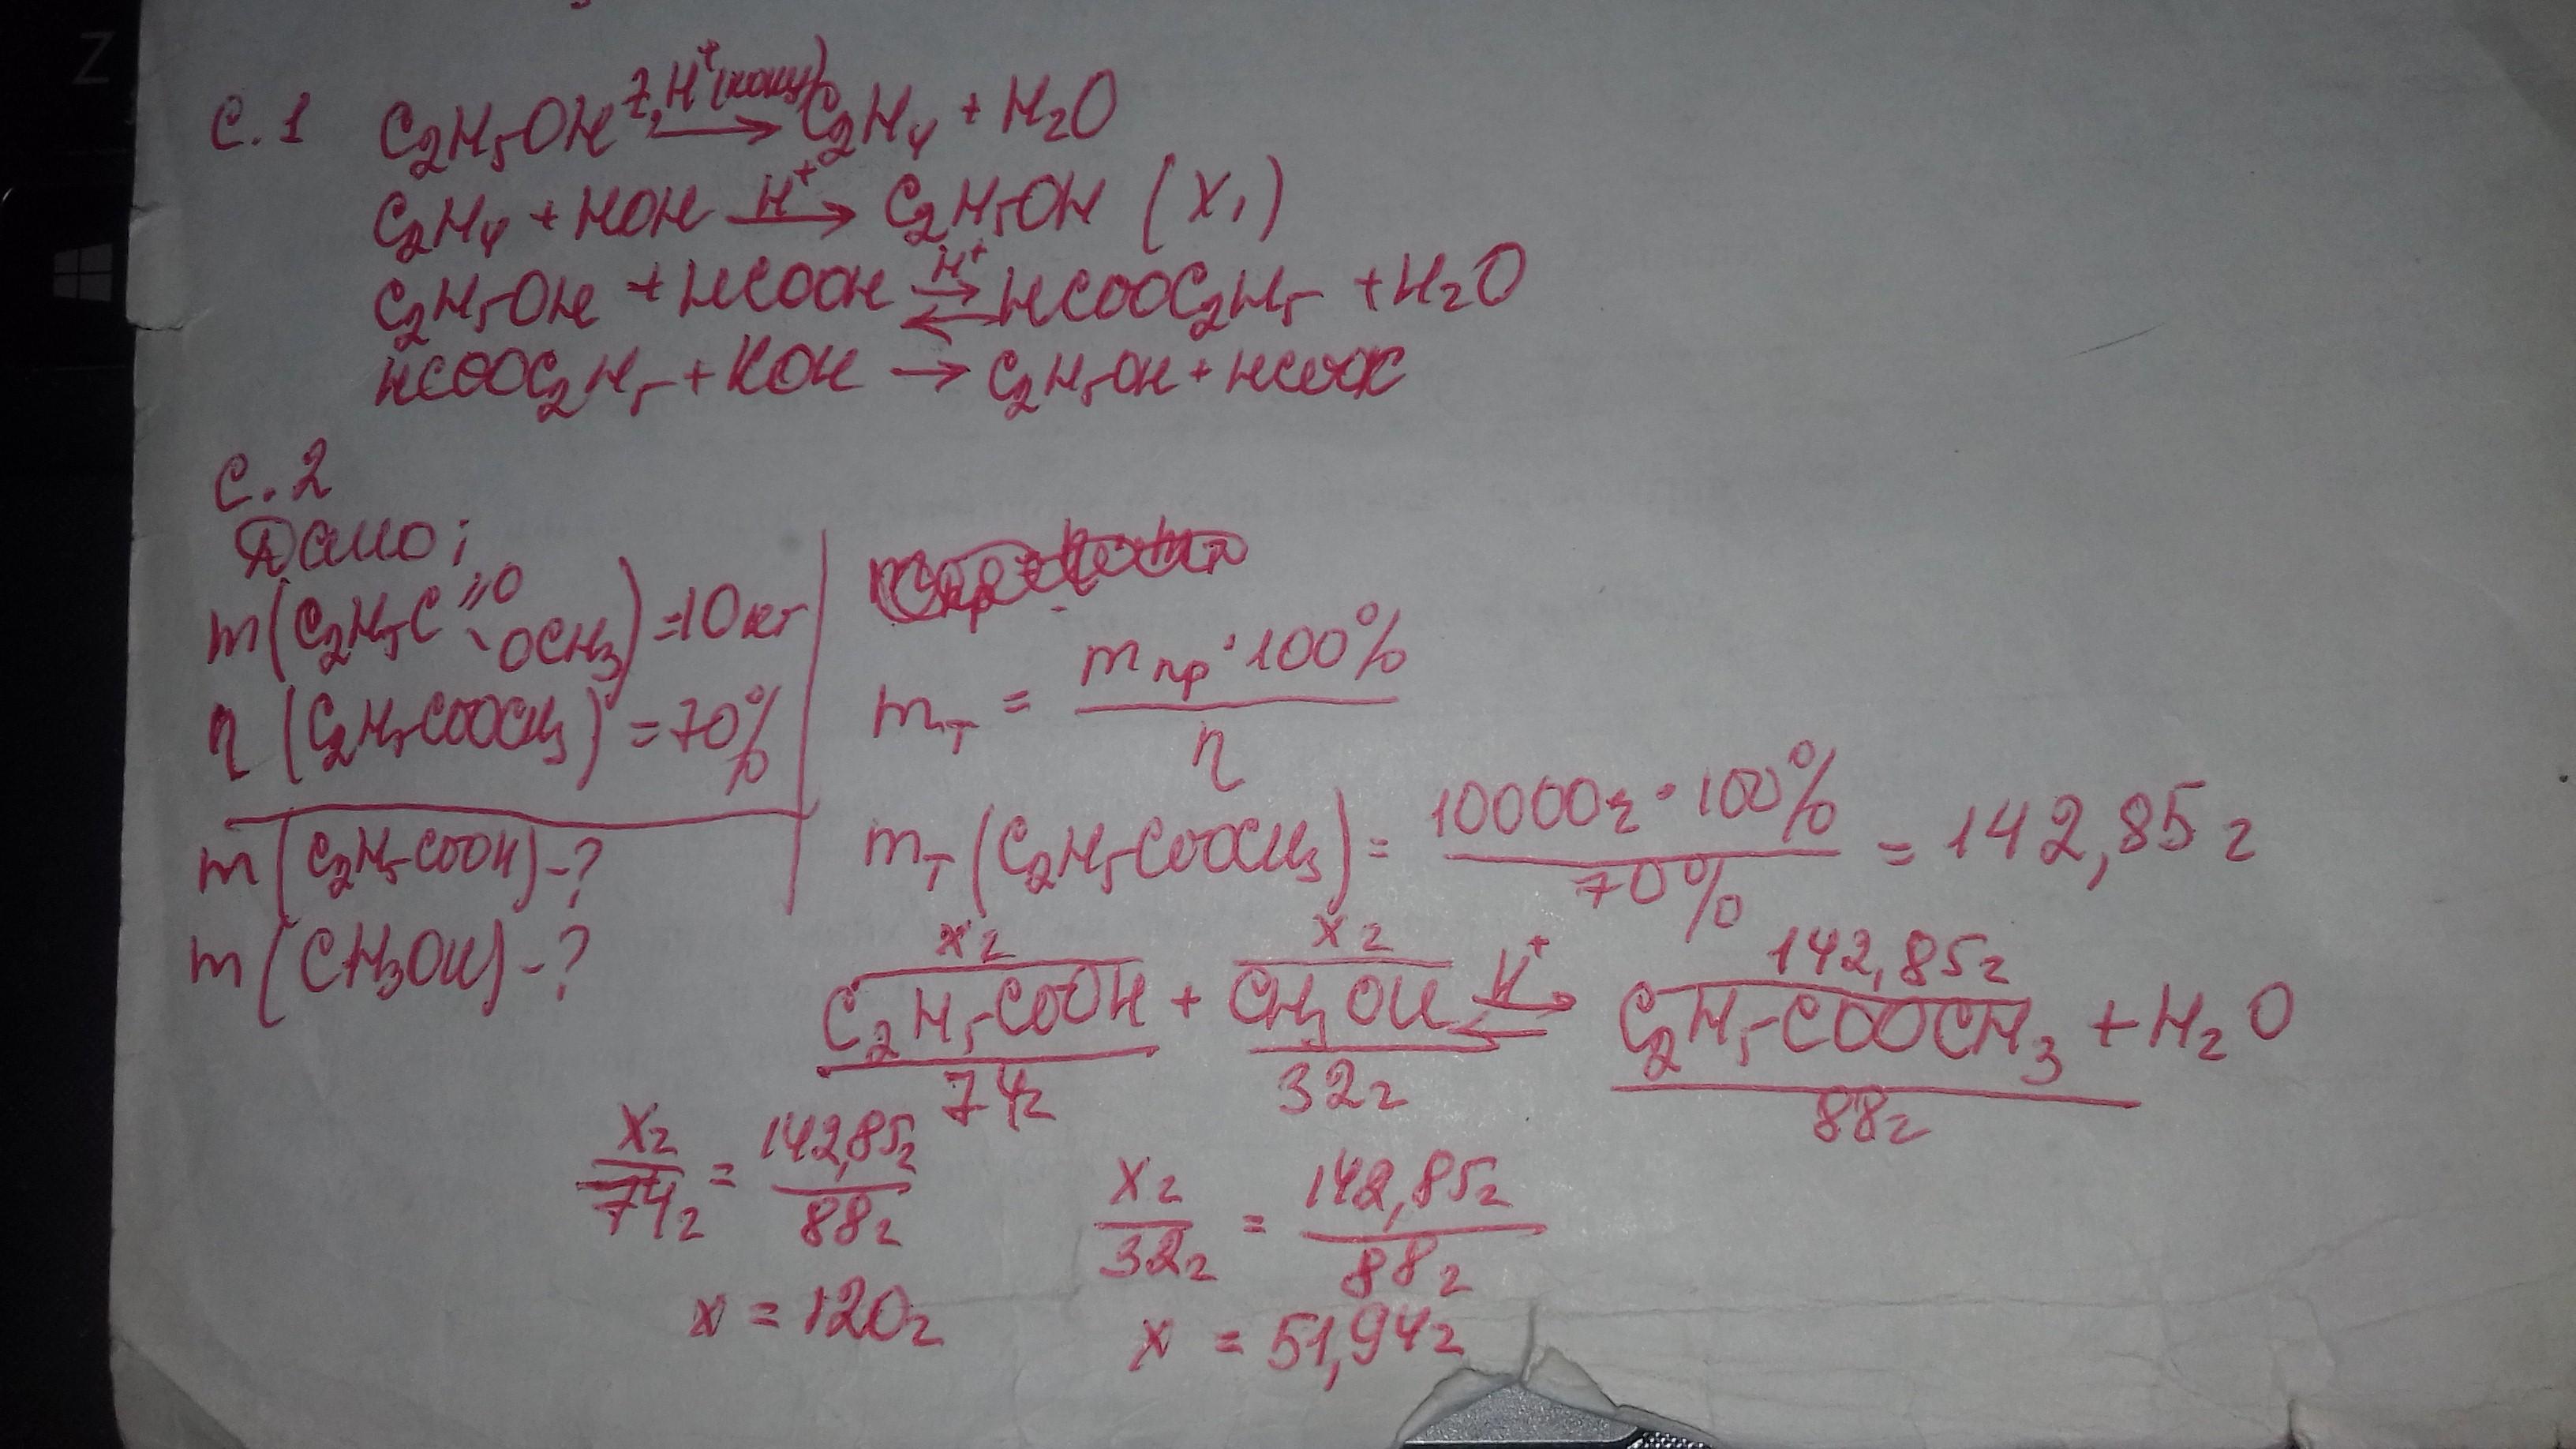 Z
C.1 C₂H₅OH t, H⁺(конц) → C₂H₄ + H₂O
C₂H₄ + HOH H⁺ → C₂H₅OH (X₁)
C₂H₅OH + HCOOH H⁺ ⇄ HCOOC₂H₅ + H₂O
HCOOC₂H₅ + KOH → C₂H₅OH + HCOOK
C.2
Дано:
m(C₂H₅C =O -OCH₃) = 10 кг
η (C₂H₅COOCH₃) = 70%
m(C₂H₅COOH) - ?
m(CH₃OH) - ?
mт = mпр · 100% / η
mт (C₂H₅COOCH₃) = 10000г · 100% / 70% = 142,85 г
xг xг 142,85г
C₂H₅COOH + CH₃OH H⁺ ⇄ C₂H₅COOCH₃ + H₂O
74г 32г 88г
xг / 74г = 142,85г / 88г
x = 120г
xг / 32г = 142,85г / 88г
x = 51,94г